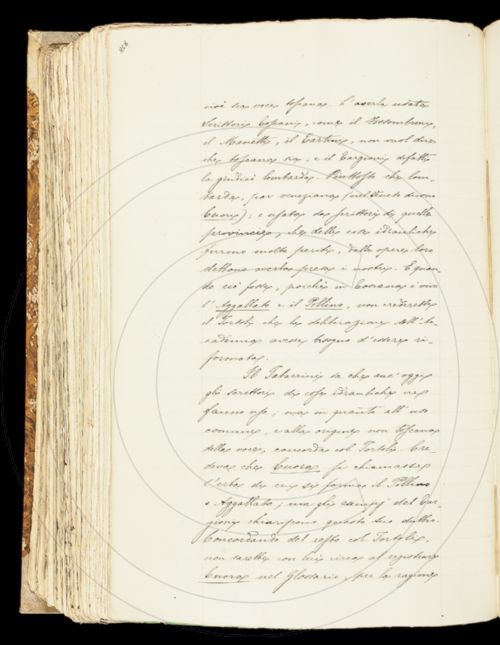 cioè sia voce toscana. L'averla usata
scrittori Toscani, come il
il Manetti, il non vuol dire
che toscana sia: e il Targioni difatti
la giudicò lombarda. Piuttosto che lom-
barda, par veneziana (nel Veneto dicono
Cuora); e usata da scrittori di quelle
provincie, che delle cose idrauliche
furono molto periti, dalle opere loro
debbono averla presa i nostri. E quan-
do ciò fosse, poichè in Toscana è vivo
l'Aggallato e il Pollino, non crederebbe
il Tortoli che la deliberazione dell'Ac-
cademia avesse bisogno d'essere ri-
formata.
Il Tabarrini sa che anc'oggi
gli scrittori di cose idrauliche ne
fanno uso; ma in quanto all'uso
comune, e alla origine non toscana
della voce, concorda col Tortoli. Cre-
deva che Cuora si chiamasse
l'erba di cui si forma il Pollino
o Aggallato; ma gli esempj del Tar-
gioni chiariscono questo suo dubbio.
Concordando del resto col Tortoli,
non sarebbe con lui circa al registrare
Cuora nel Glossario, per la ragione